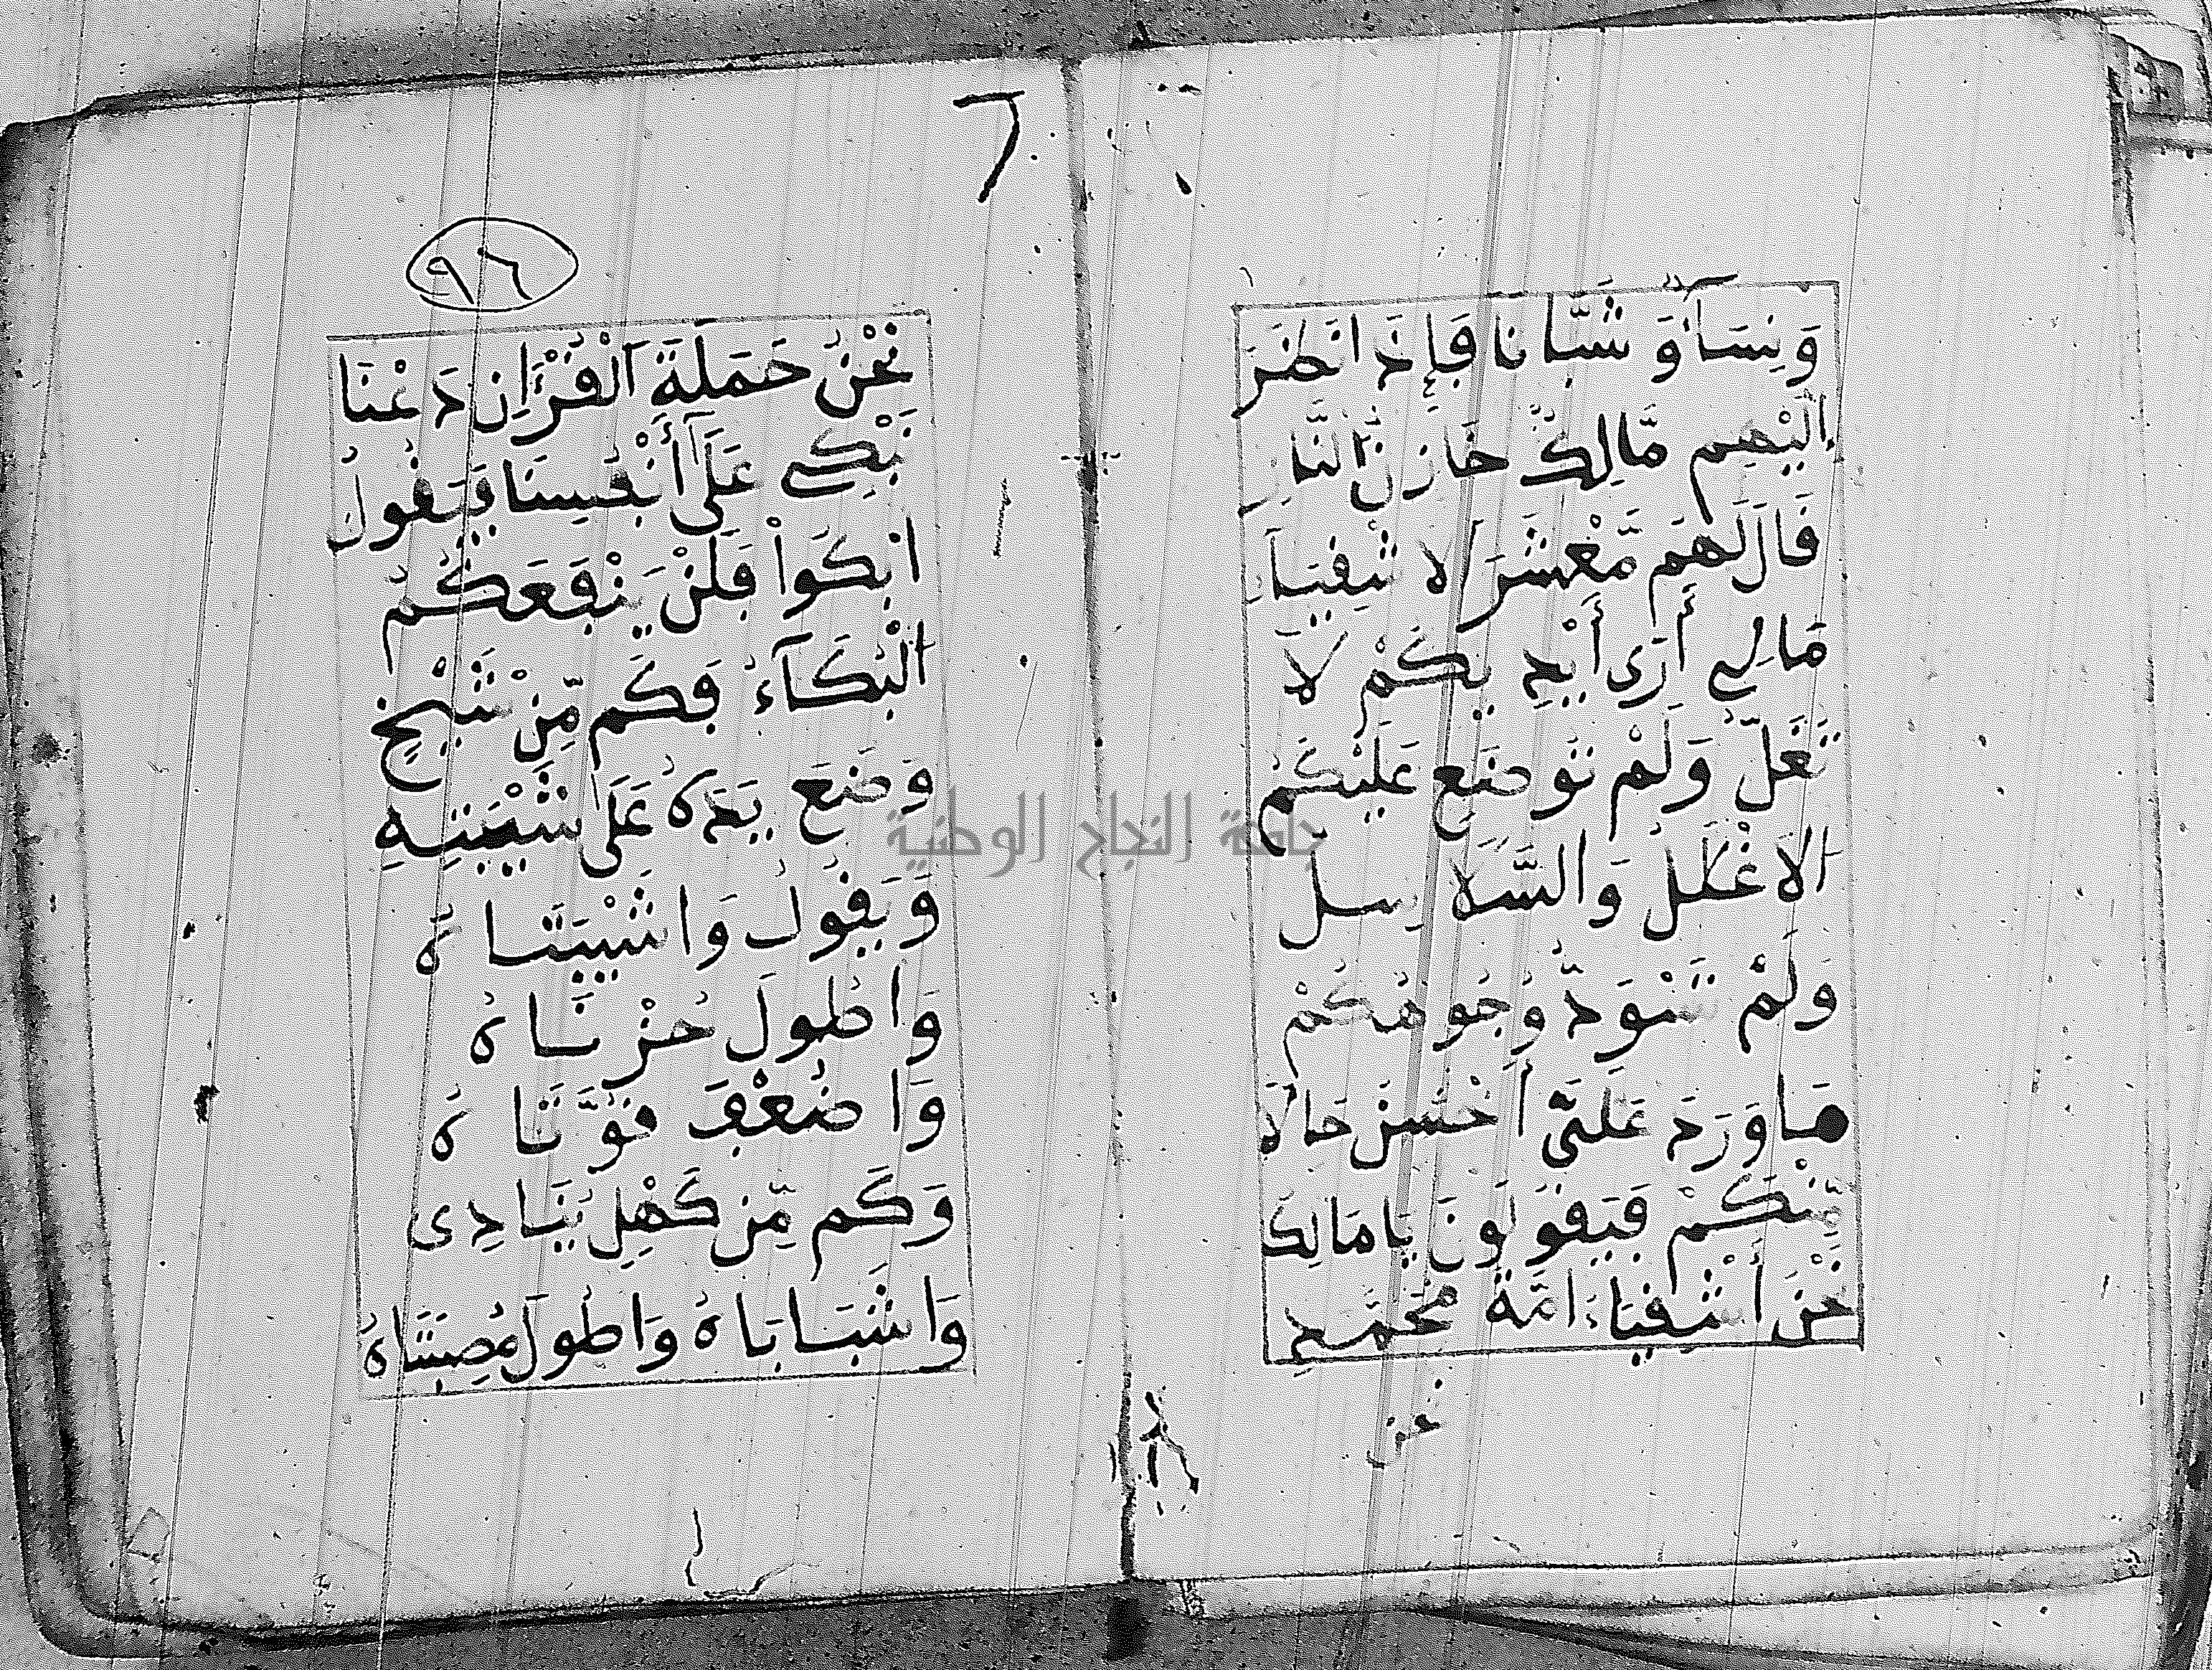 وَنِسَآءً وَ شُبَّانا فَإِذَ انَظَرَ
اليْهِم مَّالِكٌ خَازِنُ النَّارِ
قَالَ لَهُم مَّعْشَرَ الَا شْقِيَآءِ
مَالِي أَرَى أَيْدِيكُمْ لَا
تُغَلُّ وَلَمْ تُوضَع عَلَيْكُمُ
الَاغْلَلُ وَالسَّلَاسِلُ
وَلَمْ تَسْوَدُّ وُجُوهُكُمْ
مَا وَرَدَ عَلَيَّ أَحْسَنُ حَالاً
مِّنكُمْ فَيَقُولُونَ يَامَالِكُ
نَحْنُ أَشْقِيَاءُ امَّةِ مُحَمَّدٍ
نحن
٩٦
نَحْنُ حَمَلَةَ الْقُرْءَانِ دَعْنَا
نَبْكِي عَلَىٰ أَنْفُسِنَا فَيَقُولُ
ابْكُواْ فَلَنْ يَنْفَعَكُمُ
الْبُكَآءُ فَكَم مِّنْ شَيْخٍ
وَضَعَ يَدَهُ عَلَى شَيْبَتِهِ
وَيَقُولُ وَا شَيْبَتَاهُ
وَا طُولَ حُزْنَاهُ
وَا ضُعْفَ قُوَّتَاهُ
وَكَم مِّن كَهْلٍ يُنَادِى
وَا شَبَابَاهُ وَاطُولَ مُصِيبَتَاهُ
جامعة النجاح الوطنية